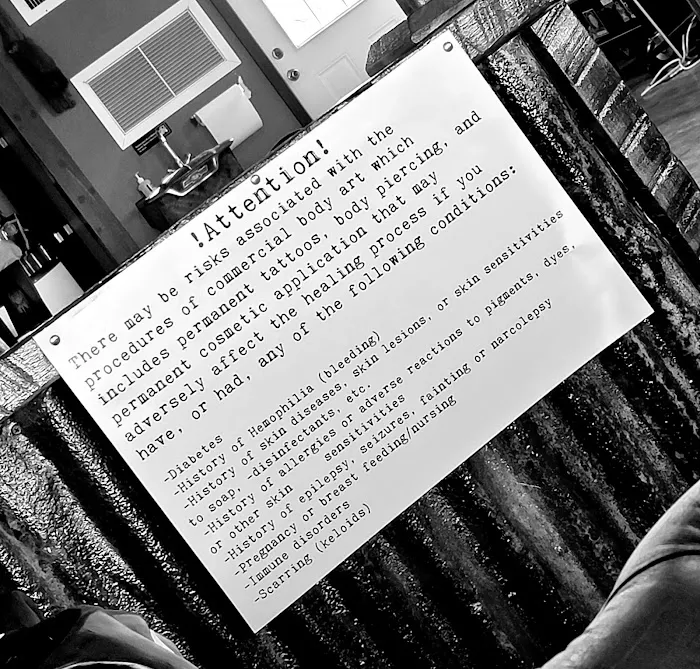 !Attention!
There may be risks associated with the
procedures of commercial body art which
includes permanent tattoos, body piercing, and
permanent cosmetic application that may
adversely affect the healing process if you
have, or had, any of the following conditions:
-Diabetes
-History of Hemophilia (bleeding)
-History of skin diseases, skin lesions, or skin sensitivities
to soap, -disinfectants, etc.
-History of allergies or adverse reactions to pigments, dyes,
or other skin sensitivities
-History of epilepsy, seizures, fainting or narcolepsy
-Pregnancy or breast feeding/nursing
-Immune disorders
-Scarring (keloids)